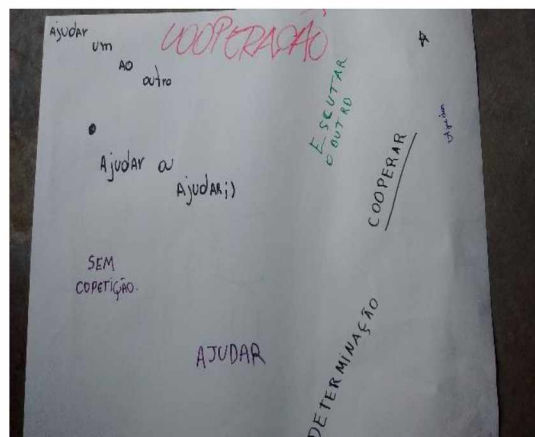 AJUDAR
um
AO
outro
COOPERAÇÃO
ESCUTAR
O OUTRO
COOPERAR
Ajudar ou
AjudAR;)
SEM
COPETIÇÃO.
AJUDAR
DETERMINAÇÃO